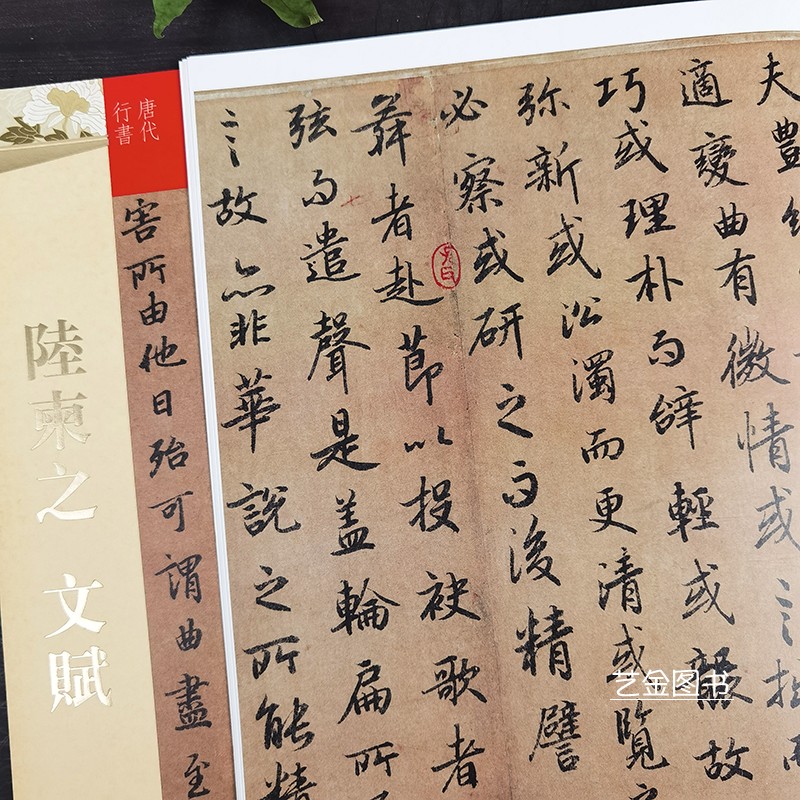 唐代
行書
陸柬之 文賦
害所由他日殆可謂曲盡至
夫豊
適變曲有微情或言拙而
巧或理朴而辝輕或襲故
弥新或沿濁而更清或覽之
必察或研之而後精譬
舞者赴節以投袂歌者
弦而遣聲是盖輪扁所
言故亦非華說之所能精
艺金图书